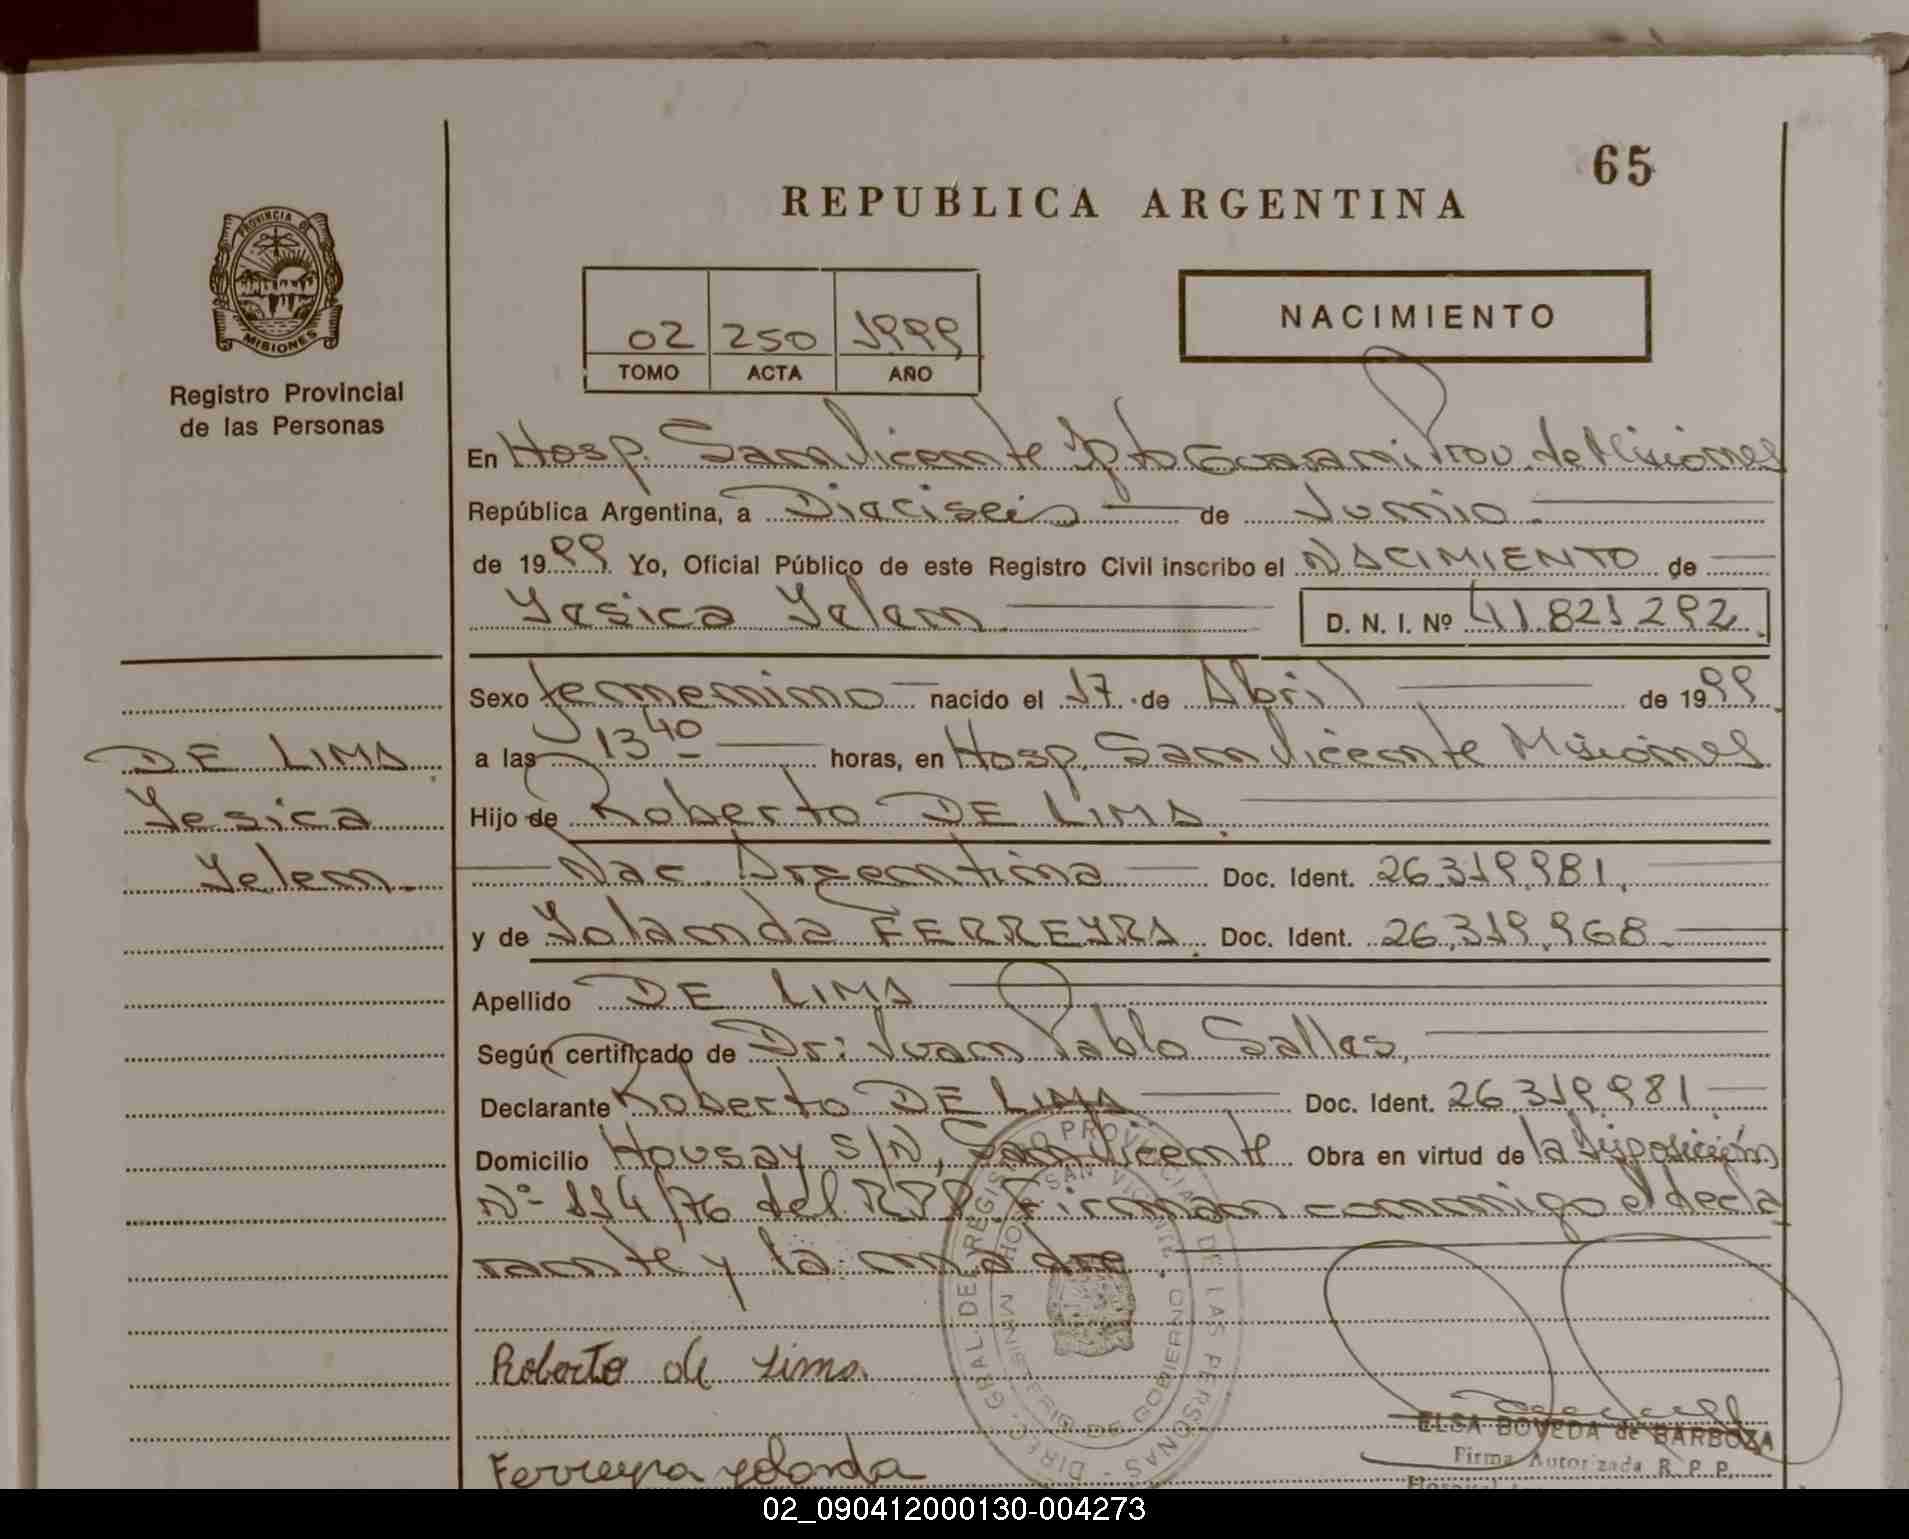 65
REPUBLICA ARGENTINA
PROVINCIA DE
MISIONES
Registro Provincial
de las Personas
02 250 1999
TOMO ACTA AÑO
NACIMIENTO
En Hosp. San Vicente Dpto Guaraní Prov. de Misiones
República Argentina, a Dieciseis de Junio
de 1999 Yo, Oficial Público de este Registro Civil inscribo el NACIMIENTO de
Yesica Yelem D. N. I. Nº 41.821.292
Sexo femenino nacido el 17 de Abril de 1999
a las 13 40 horas, en Hosp. San Vicente Misiones
Hijo de Roberto DE LIMA.
Nac. Argentina Doc. Ident. 26.319.981.
y de Yolanda FERREYRA. Doc. Ident. 26.319.968.
Apellido DE LIMA
Según certificado de Dr: Juan Pablo Salles.
Declarante Roberto DE LIMA Doc. Ident. 26.319.981.
Domicilio Housay S/N, San Vicente Obra en virtud de la Disposición
Nº 114/76 del RPP. Firman conmigo el decla
rante y la madre.
DE LIMA.
Yesica
Yelem.
Roberto de Lima
Ferreyra yolanda
DIREC. GRAL. DEL REGISTRO PROVINCIAL DE LAS PERSONAS
HOSP. SAN VICENTE
MINISTERIO DE GOBIERNO
ELSA BOVEDA de BARBOZA
Firma Autorizada R. P. P.
02_090412000130-004273